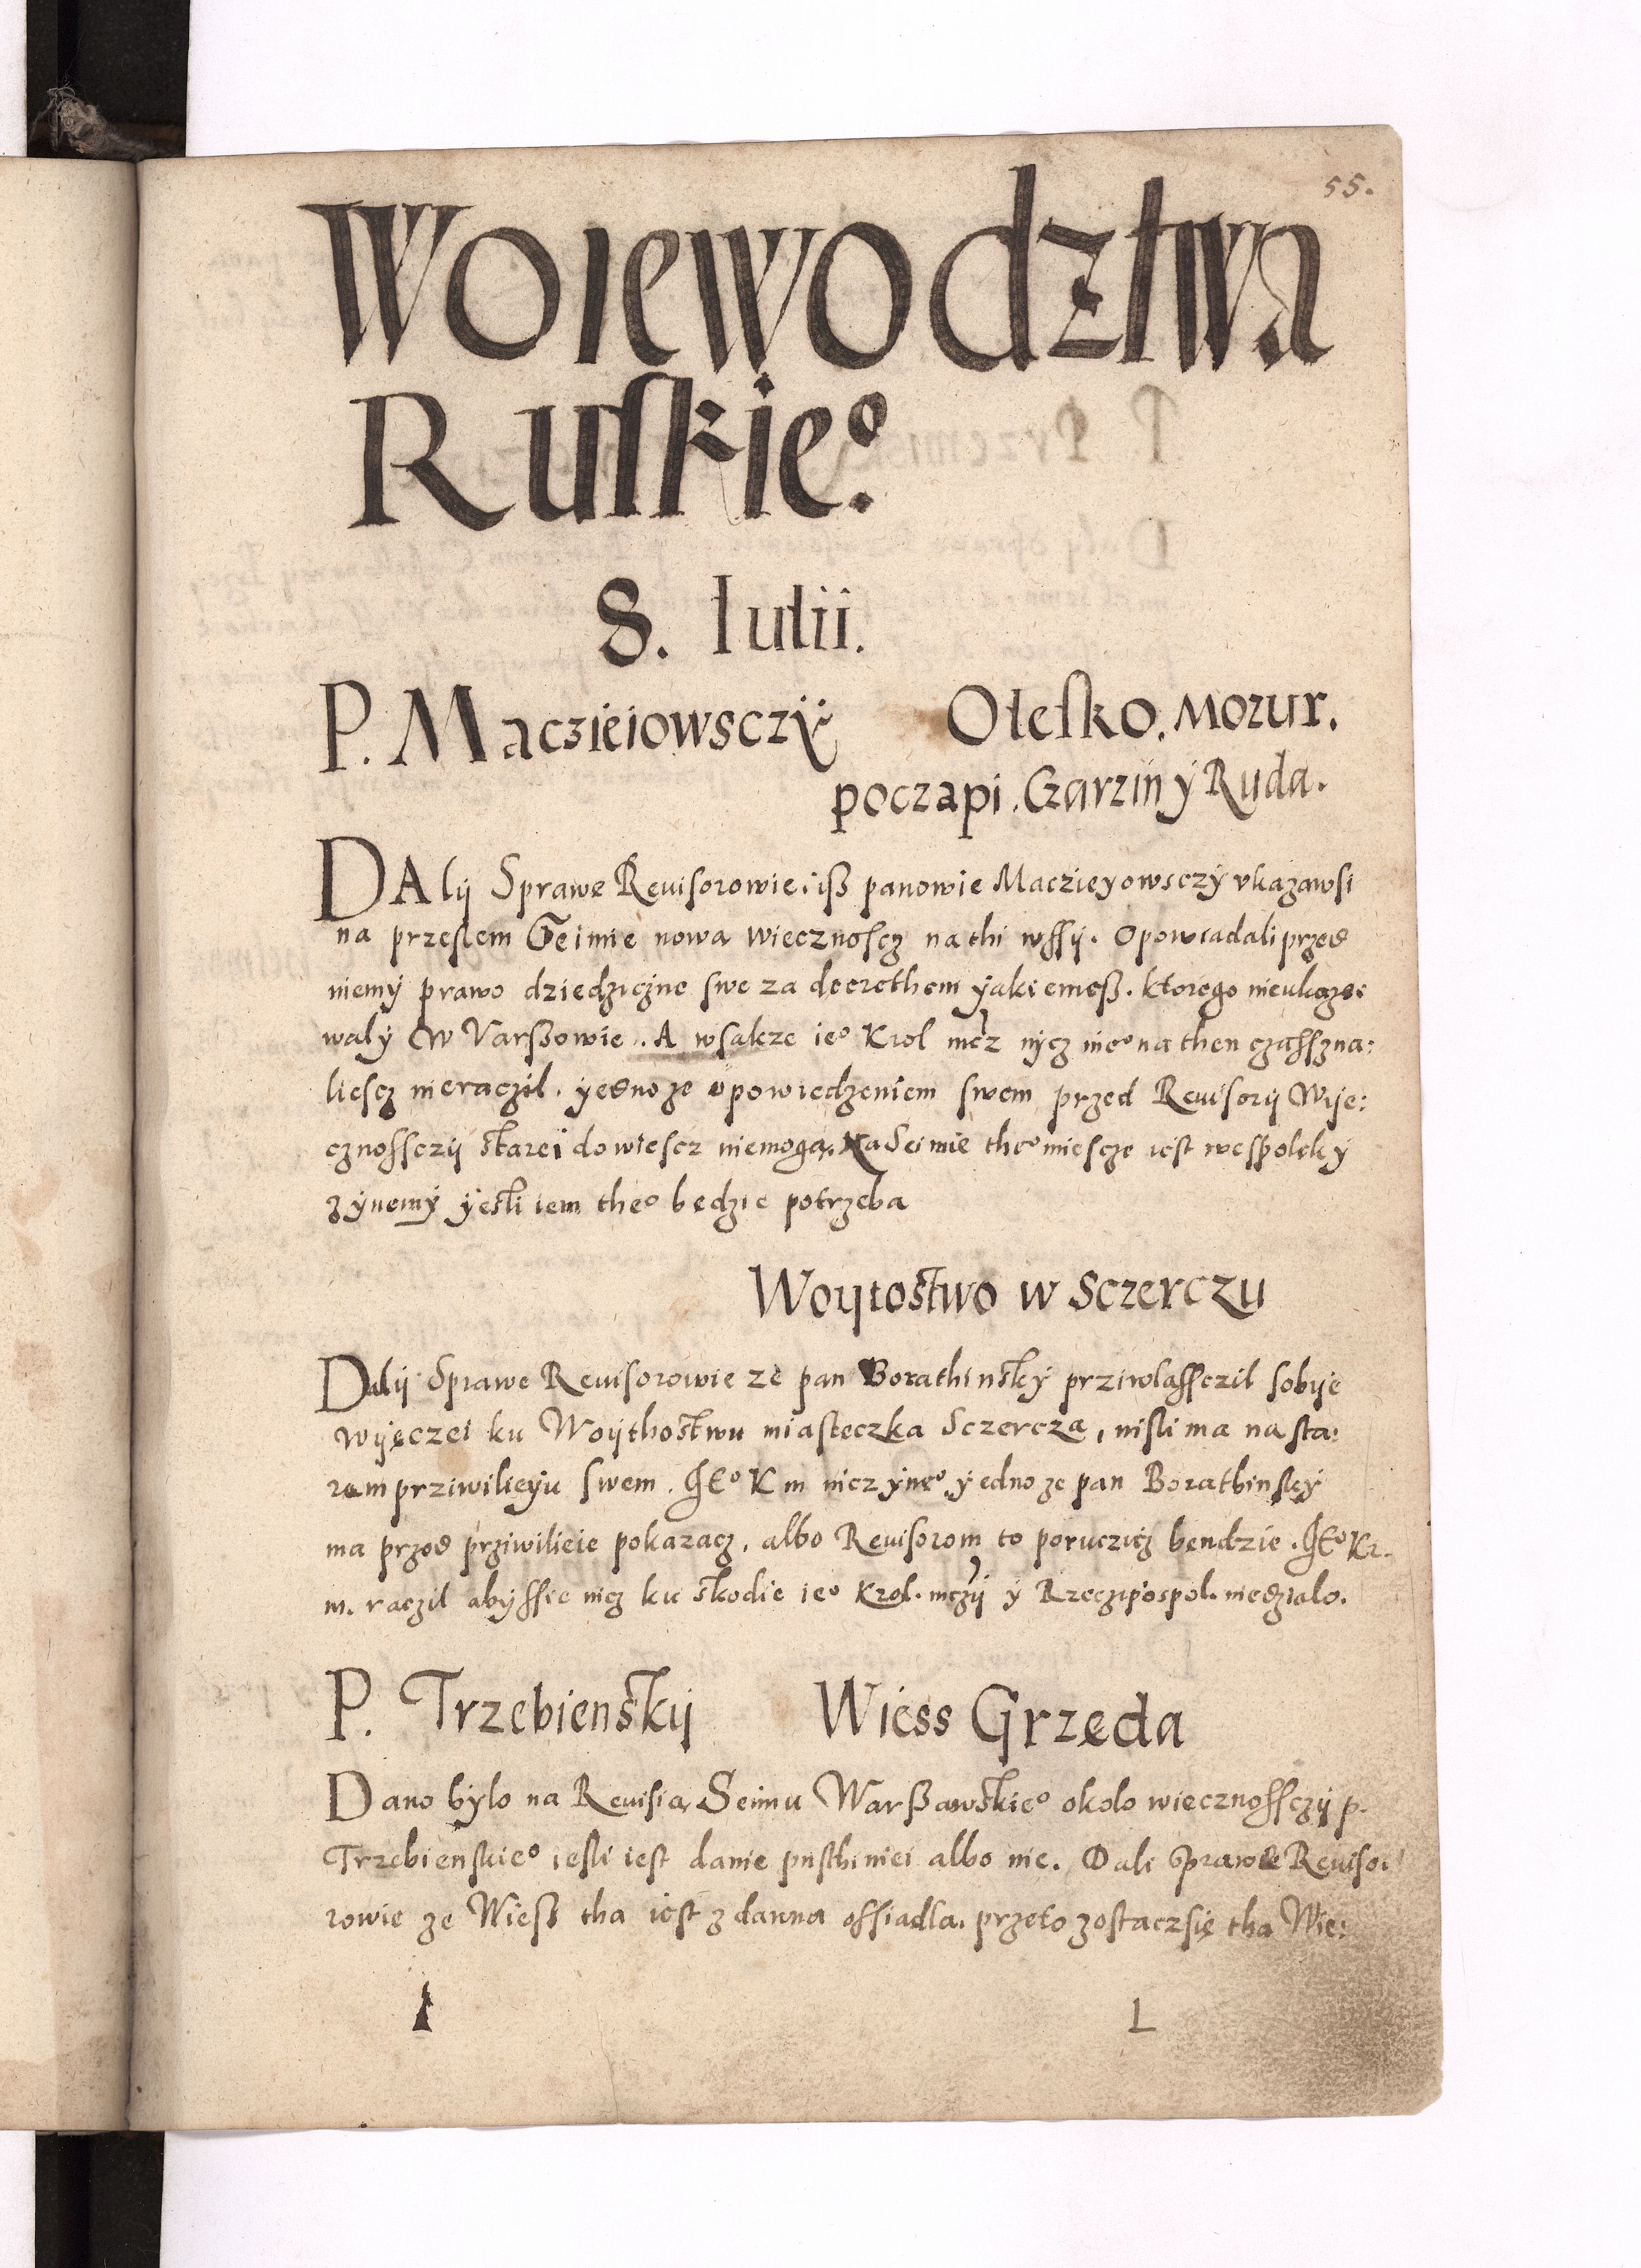 55.
Woiewodztwa
Ruskie°
8. Iulii.
P. Maczieiowsczÿ Olesko. Mozur.
poczapi. Czarziń ÿ Ruda.
DAlij Sprawe Reuisorowie iß panowie Macziejowsczÿ vkazawsi
na przeslem Seimie nowa wiecznoscz na thi wssij. Opowiadali przed
niemÿ prawo dziedziczne swe za decrethem ÿakiemeß. ktorego nieukazo:
walÿ W Varßowie. A wsakze ie° Krol mcz nycz nie° na then czass zna:
liescz nieraczil. ÿedno ze opowiedzeniem swem przed Reuisorij Wije:
cznossczij starei dowiescz niemoga. Na Seimie the° miescze iest wespolek ÿ
z ÿnemÿ ÿesli iem the° bedzie potrzeba
Woijtostwo w Sczerczu
Dalij Sprawe Reuisorowie ze pan Borathinskÿ prziwlassczil sobije
wijęczei ku Woijthostwu miasteczka Sczercza, nisli ma na sta:
rem prziwilieÿu swem. JE° K m nicz ÿne° ÿedno ze pan Borathinskÿ
ma przed prziwilieie pokazacz, albo Reuisorom to poruczicz bendzie. JE° Kr.
m. raczil abÿssie nicz ku skodie ie° Krol. mczij ÿ Rzeczipospol. niedzialo.
P. Trzebienskij Wiess Grzęda
Dano bÿlo na Reuisią Seimu Warßawskie° okolo wiecznossczij p.
Trzebienskie° iesli iest danie pusthiniei albo nie. Dali Sprawe Reuiso:
rowie ze Wieß tha iest z dawna ossiadla. przeto zostaczsię tha Wie:
L